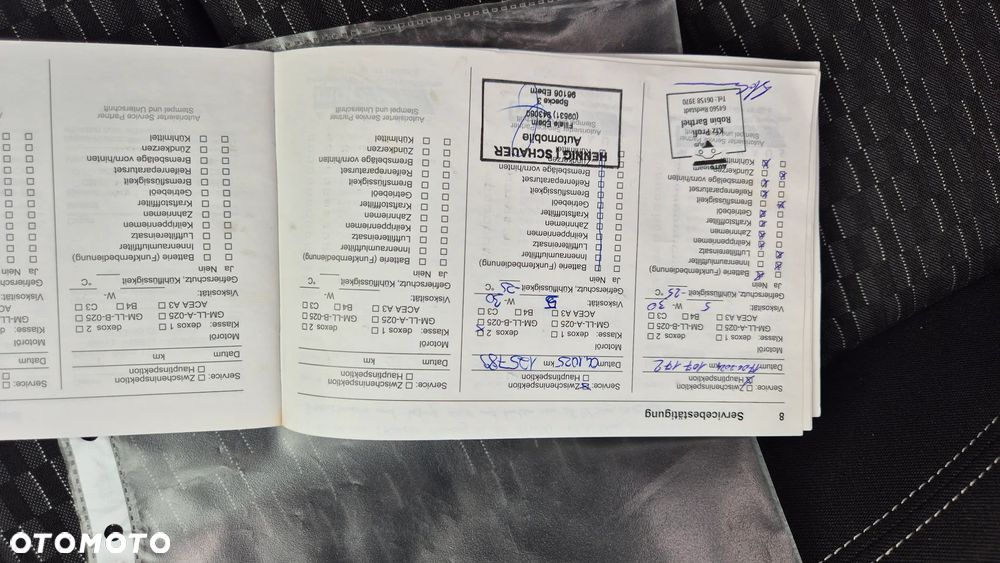 8 Servicebestätigung
Service: Zwischeninspektion
Hauptinspektion
Datum km 107 172
Motoröl
Klasse: dexos 1 dexos 2
GM-LL-A-025 GM-LL-B-025
ACEA A3 B4 C3
Viskosität: 5 W- 30
Gefrierschutz, Kühlflüssigkeit -25 °C
Ja Nein
Batterie (Funkfernbedienung)
Innenraumluftfilter
Luftfiltereinsatz
Keilrippenriemen
Zahnriemen
Kraftstofffilter
Getriebeöl
Bremsflüssigkeit
Reifenreparaturset
Bremsbeläge vorn/hinten
Zündkerzen
Kühlmittel
Kfz Profi
Robin Barthel
64560 Riedstadt
Tel.: 06158 3970
Service: Zwischeninspektion
Hauptinspektion
Datum km 12578
Motoröl
Klasse: dexos 1 dexos 2
GM-LL-A-025 GM-LL-B-025
ACEA A3 B4 C3
Viskosität: 5 W- 30
Gefrierschutz, Kühlflüssigkeit -25 °C
Ja Nein
Batterie (Funkfernbedienung)
Innenraumluftfilter
Luftfiltereinsatz
Keilrippenriemen
Zahnriemen
Kraftstofffilter
Getriebeöl
Bremsflüssigkeit
Reifenreparaturset
Bremsbeläge vorn/hinten
Zündkerzen
Kühlmittel
HENNIG SCHAUER
Automobile
Filiale Ebern
(09531) 943060
Specke 3
96106 Ebern
Service: Zwischeninspektion
Hauptinspektion
Datum km
Motoröl
Klasse: dexos 1 dexos 2
GM-LL-A-025 GM-LL-B-025
ACEA A3 B4 C3
Viskosität: W-
Gefrierschutz, Kühlflüssigkeit °C
Ja Nein
Batterie (Funkfernbedienung)
Innenraumluftfilter
Luftfiltereinsatz
Keilrippenriemen
Zahnriemen
Kraftstofffilter
Getriebeöl
Bremsflüssigkeit
Reifenreparaturset
Bremsbeläge vorn/hinten
Zündkerzen
Kühlmittel
Autorisierter Service Partner
Stempel und Unterschrift
Service: Zwischeninspektion
Hauptinspektion
Datum km
Motoröl
Klasse: dexos 1 dexos 2
GM-LL-A-025 GM-LL-B-025
ACEA A3 B4 C3
Viskosität: W-
Gefrierschutz, Kühlflüssigkeit °C
Ja Nein
Batterie (Funkfernbedienung)
Innenraumluftfilter
Luftfiltereinsatz
Keilrippenriemen
Zahnriemen
Kraftstofffilter
Getriebeöl
Bremsflüssigkeit
Reifenreparaturset
Bremsbeläge vorn/hinten
Zündkerzen
Kühlmittel
Autorisierter Service Partner
Stempel und Unterschrift
OTOMOTO